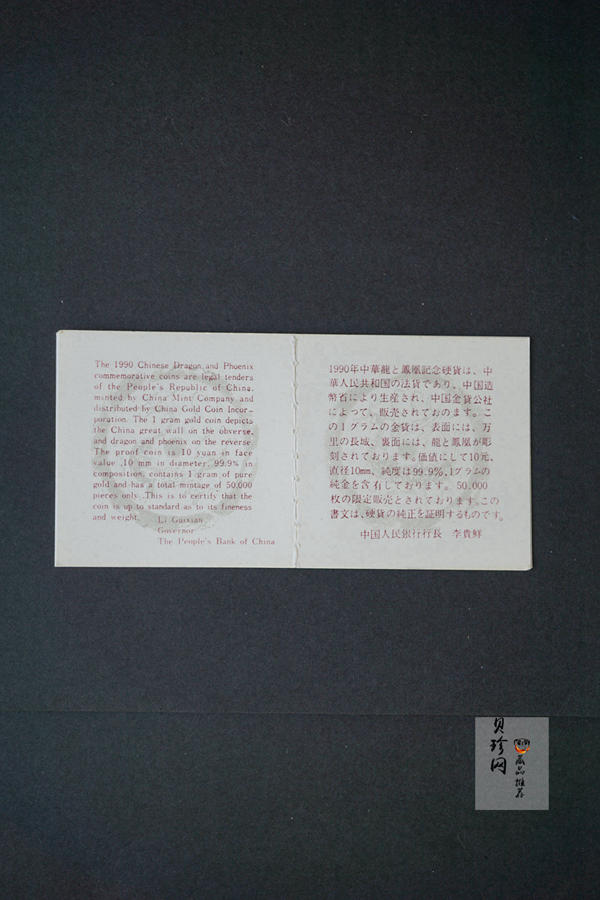 The 1990 Chinese Dragon and Phoenix
commemorative coins are legal tenders
of the People's Republic of China,
minted by China Mint Company and
distributed by China Gold Coin Incor-
poration. The 1 gram gold coin depicts
the China great wall on the obverse,
and dragon and phoenix on the reverse.
The proof coin is 10 yuan in face
value ,10 mm in diameter, 99.9% in
composition, contains 1 gram of pure
gold and has a total mintage of 50,000
pieces only .This is to certify that the
coin is up to standard as to its fineness
and weight.
Li Guixian
Governor
The People's Bank of China
1990年中華龍と鳳凰記念硬貨は、中
華人民共和国の法貨であり、中国造
幣省により生産され、中国金貨公社
によって、販売されておのます。こ
の1グラムの金貨は、表面には、万
里の長城、裏面には、龍と鳳凰が彫
刻されております。価値にして10元、
直径10mm、純度は99.9%、1グラムの
純金を含有しております。50,000
枚の限定販売とされております。この
書文は、硬貨の純正を証明するものです。
中国人民銀行行長 李貴鮮
贝珍网
藏品推荐